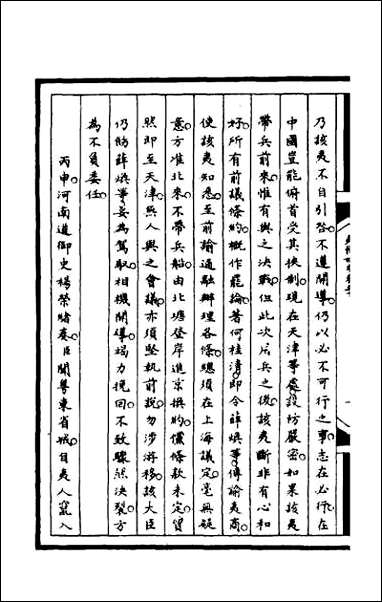 乃該夷不自引咎不遵開導仍以必不可行之事志在必行在
中國豈能俯首受其挾制現在天津等處設防嚴密如果該夷
帶兵前來惟有與之決戰但此次用兵之後該夷斷非有心和
好所有前議條約概作罷論著何桂清即令薛煥等傳諭夷商
使該夷知悉至前諭通融辦理各條總須在上海議定毫無疑
意方准北來不帶兵船由北塘登岸進京換約儻條款未定貿
然即至天津無人與之會議亦須堅執前說勿涉游移該大臣
仍飭薛煥等妥為駕馭相機開導竭力挽回不致驟然決裂方
為不負委任
丙申河南道御史楊榮緒奏臣聞粵東省城自夷人竄入